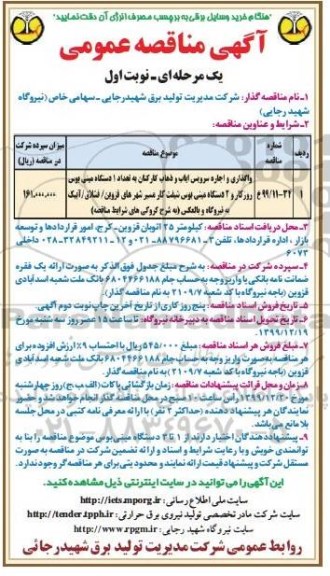 "هنگام خرید وسایل برقی به برچسب مصرف انرژی آن دقت نمایید"
آگهی مناقصه عمومی
یک مرحله‌ای - نوبت اول
۱- نام مناقصه گذار: شرکت مدیریت تولید برق شهیدرجایی - سهامی خاص (نیروگاه
شهید رجایی)
۲- شرایط و عناوین مناقصه:
ردیف شماره مناقصه موضوع مناقصه میزان سپرده شرکت در مناقصه (ریال)
واگذاری و اجاره سرویس ایاب و ذهاب کارکنان به تعداد ۱ دستگاه مینی بوس
۱ ۹۹/۱۱-۳۴ع روزکار و ۲ دستگاه مینی بوس شیفت کار مسیر شهر های قزوین / آبیک
به نیروگاه و بالعکس (به شرح کروکی های شرایط مناقصه)
۳- محل دریافت اسناد مناقصه: کیلومتر ۲۵ اتوبان قزوین-کرج، امور قراردادها و توسعه
بازار، اداره قراردادها، تلفن ۳-۸۸۷۹۶۶۸۱-۰۲۱ و ۱۲-۳۲۸۴۹۲۱۱-۰۲۸ داخلی
۶۰۷۳
۴- سپرده شرکت در مناقصه: به شرح مبلغ جدول فوق الذکر به صورت ارائه یک فقره
ضمانت نامه بانکی یا واریز وجه به حساب جام ۶۸۰۴۴۶۶۱۸۸ بانک ملت شعبه اسدآبادی
قزوین (باجه نیروگاه با کد شعبه ۳۱۰۹/۷) به نام مناقصه گذار.
۵- تاریخ فروش اسناد مناقصه: پنج روز کاری از تاریخ آخرین چاپ نوبت دوم آگهی.
۶- تاریخ تحویل اسناد مناقصه به دبیرخانه نیروگاه: تا ساعت ۱۵ عصر روز سه شنبه مورخ
۱۳۹۹/۱۲/۱۹
۷- مبلغ فروش هر اسناد مناقصه: مبلغ ۵۴۵/۰۰۰ ریال با احتساب ۹٪ ارزش افزوده برای
هر مناقصه به صورت واریز وجه به حساب جام ۶۸۰۴۴۶۶۱۸۸ بانک ملت شعبه اسدآبادی
قزوین (باجه نیروگاه با کد شعبه ۳۱۰۹/۷) به نام مناقصه گذار.
۸- زمان و محل قرائت پیشنهادات مناقصه: زمان بازگشایی پاکات (الف، ب، ج) روز چهارشنبه
مورخ ۱۳۹۹/۱۲/۲۰ صبح در محل مناقصه گذار انجام خواهد شد و حضور
نمایندگان هر پیشنهاد دهنده (حداکثر ۲ نفر) با ارائه معرفی نامه کتبی در محل جلسه
بلا مانع می باشد.
۹- پیشنهاد دهندگان اختیار دارند از ۱ تا ۳ دستگاه مینی بوس موضوع مناقصه را بنا به
توانمندی خویش و با رعایت شرایط و اسناد و ارائه تضمین شرکت در مناقصه به صورت
مستقل شرکت و پیشنهاد قیمت ارائه نمایند و محدودیتی برای هر مناقصه گر وجود ندارد.
این آگهی را می توانید در سایت اینترنتی ذیل مشاهده کنید.
سایت ملی اطلاع رسانی: http://iets.mporg.ir
سایت شرکت مادر تخصصی تولید نیروی برق حرارتی: http://tender.tpph.ir
سایت نیروگاه شهید رجایی: http://www.rpgm.ir
روابط عمومی شرکت مدیریت تولید برق شهیدرجائی
۰۲۱-۸۸۳۴۹۶۷۰